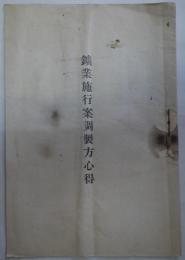 鑛業施行案調製方心得